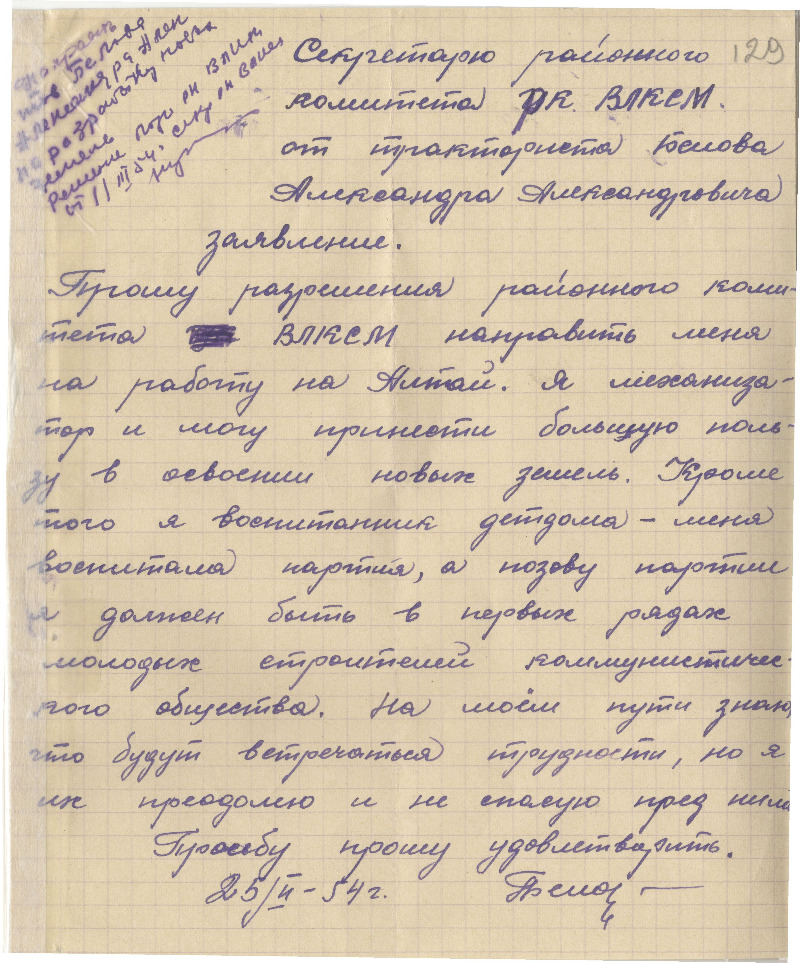 направить
тов Белова
Александра Алек
на разработку новых
земель
Решение бюро РК ВЛКСМ
от 1/III 54г. секр РК ВЛКСМ
129
Секретарю районного
комитета РК. ВЛКСМ.
от тракториста Белова
Александра Александровича
заявление.
Прошу разрешения районного коми-
тета ВЛКСМ направить меня
на работу на Алтай. Я механиза-
тор и могу принести большую поль-
зу в освоении новых земель. Кроме
того я воспитанник детдома – меня
воспитала партия, а позову партии
я должен быть в первых рядах
молодых строителей коммунистичес-
кого общества. На моём пути знаю,
что будут встречаться трудности, но я
их преодолею и не спасую пред ними
Просьбу прошу удовлетворить.
25/II – 54 г. Белов